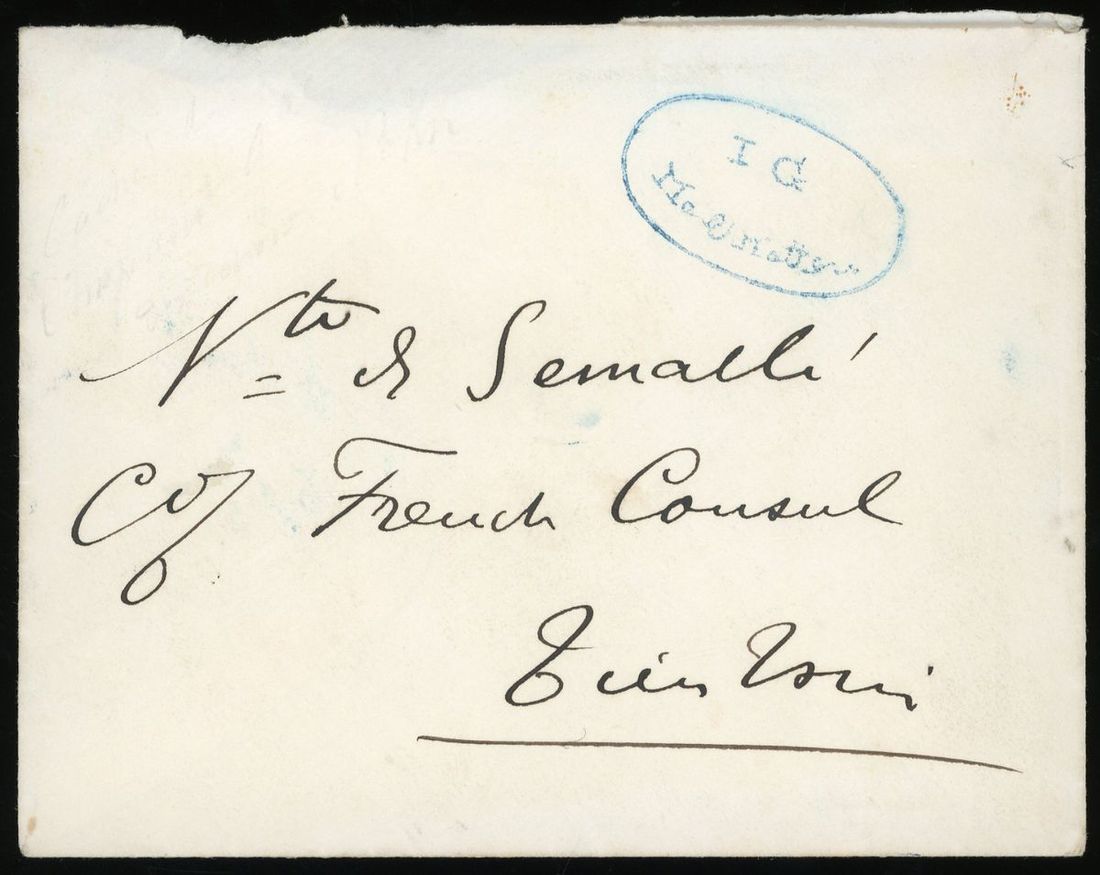 I G
Vte de Semallé
C/o French Consul
Tien Tsin